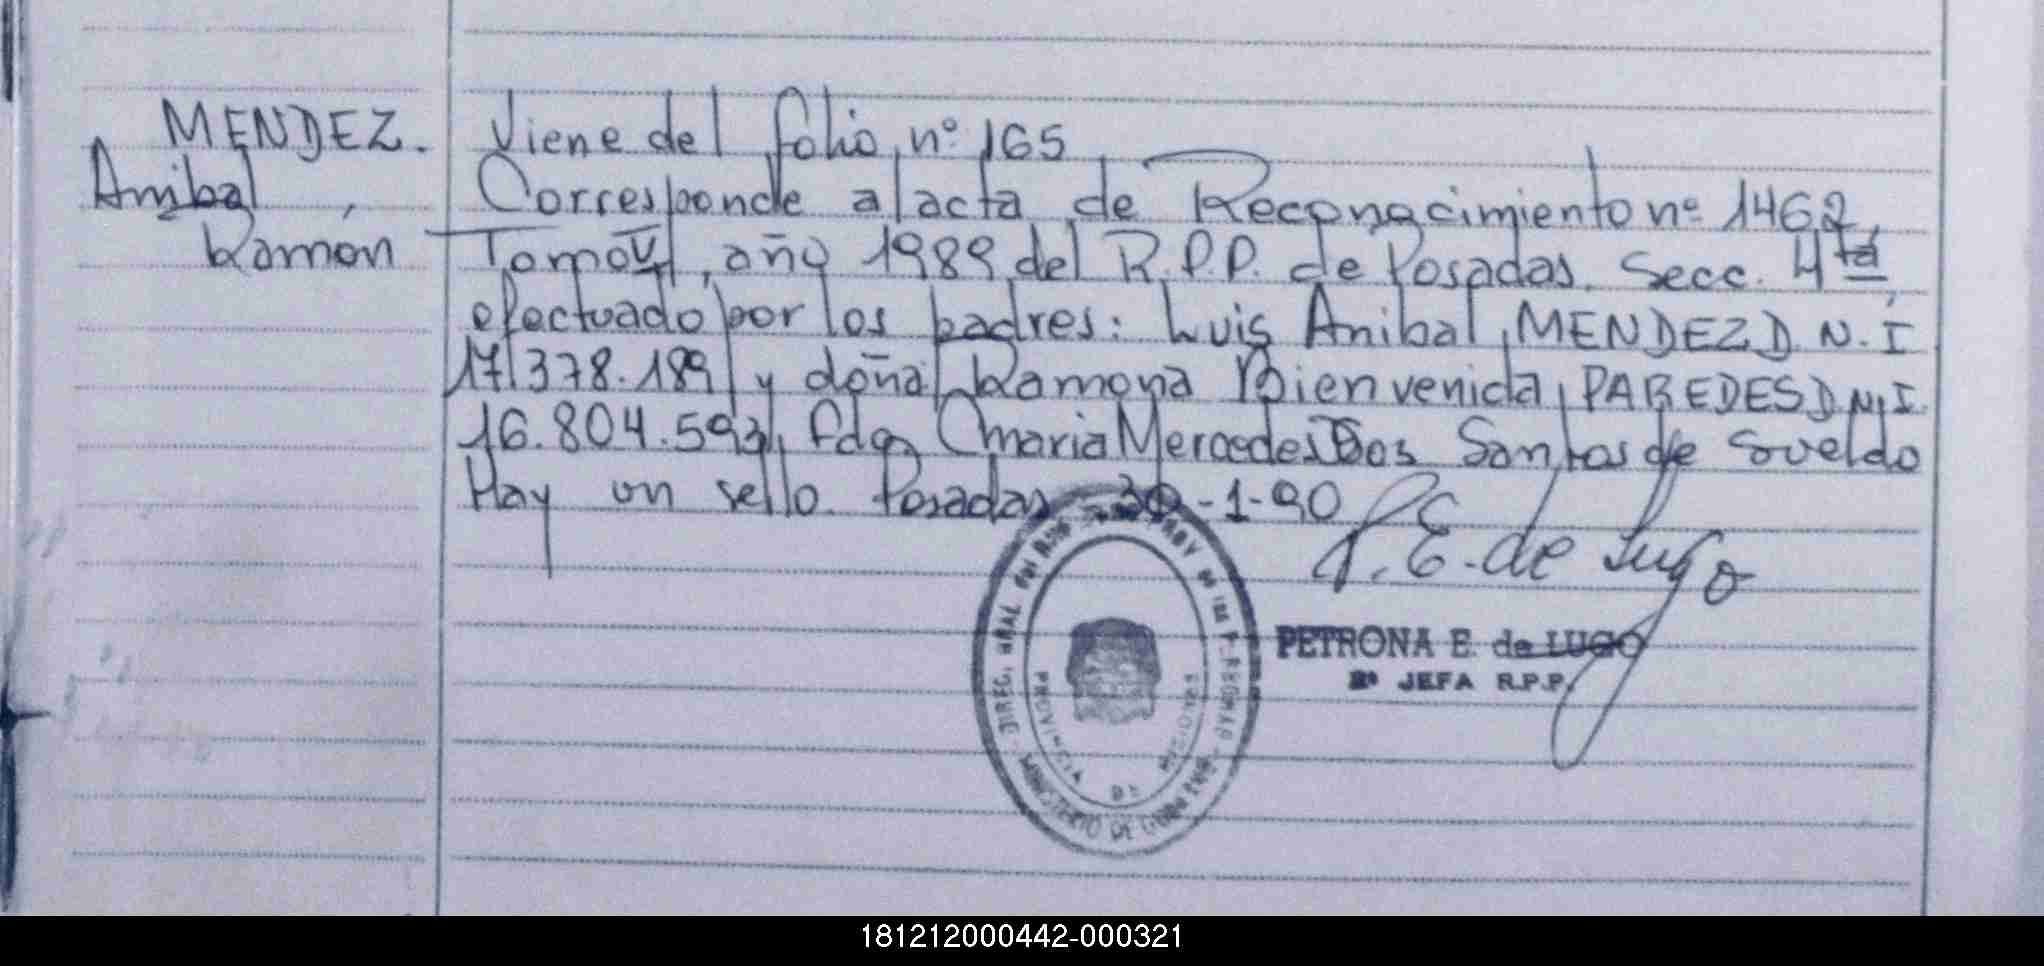 MENDEZ.
Anibal,
Ramon
Viene del folio nº 165
Corresponde al acta de Reconocimiento nº 1462,
Tomo V, año 1989 del R.P.P. de Posadas. Secc. 4ta,
efectuado por los padres: Luis Anibal MENDEZ D.N.I
17.378.189 y doña Ramona Bienvenida PAREDES D.N.I.
16.804.593, fdo, Maria Mercedes Dos Santos de Sueldo
Hay un sello. Posadas 30-1-90
P.E. de Lugo
PETRONA E. de LUGO
2ª JEFA R.P.P.
DIREC. GRAL. del
de las
MINISTERIO DE
PROVINCIA DE MISIONES
181212000442-000321